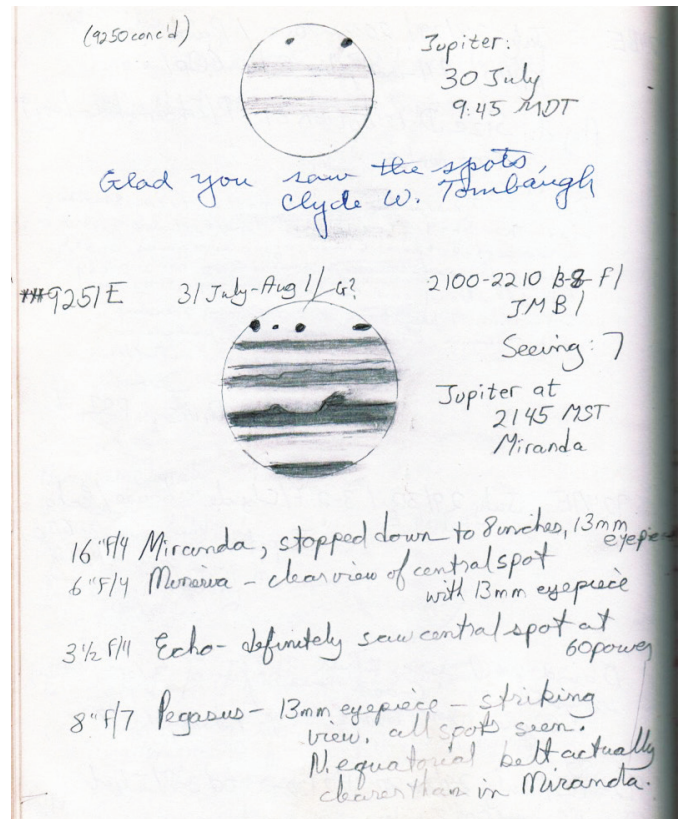 (9250 conc'd)
Jupiter:
30 July
9:45 MDT
Glad you saw the spots,
Clyde W. Tombaugh
9251E 31 July-Aug 1/ G? 2100-2210 F1
JMB1
Seeing: 7
Jupiter at
2145 MST
Miranda
16" f/4 Miranda, stopped down to 8 inches, 13mm
6" f/4 Minerva - clear view of central spot
with 13mm eyepiece
3 1/2 f/11 Echo - definitely saw central spot at
60 power
8" f/7 Pegasus - 13mm eyepiece - striking
view. all spots seen.
N. equatorial belt actually
clearer than in Miranda.